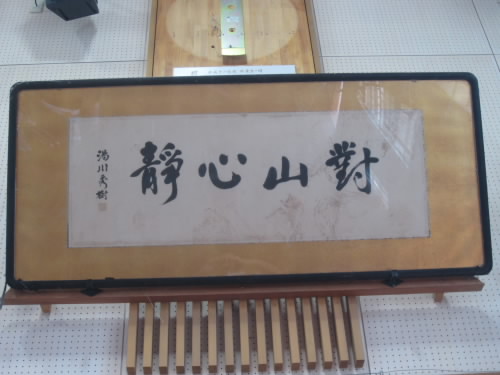 對山心靜
湯川秀樹